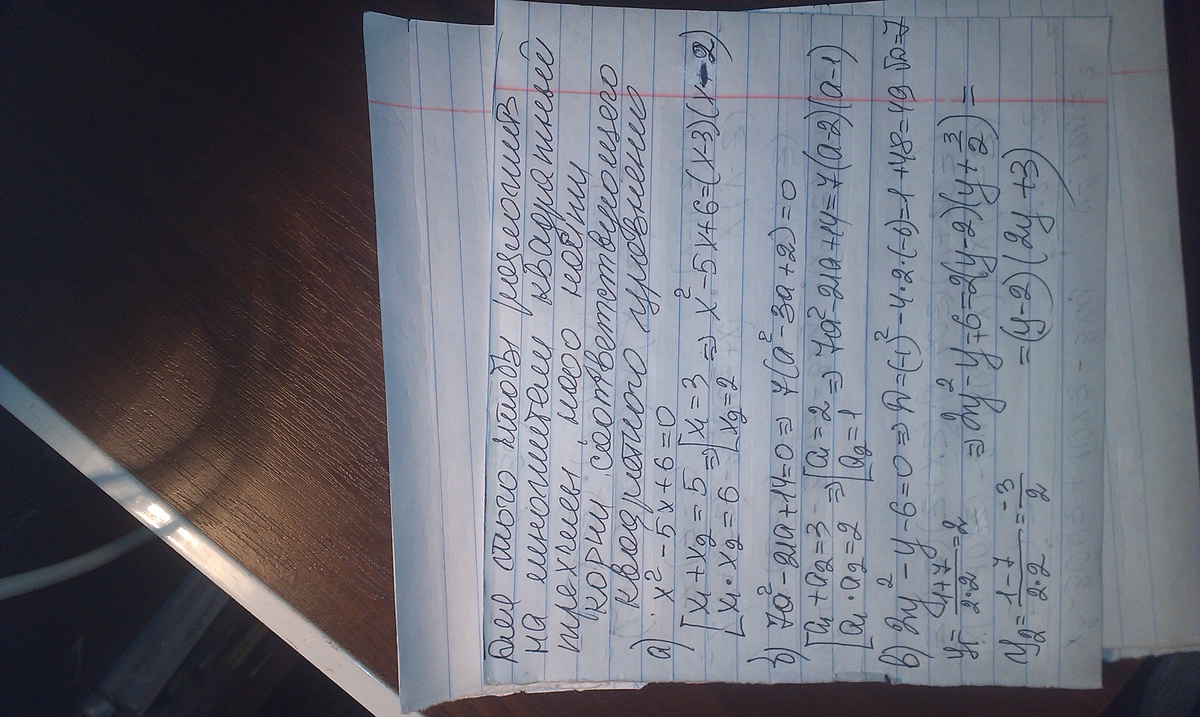 Для того чтобы разложить
на множители квадратный
трехчлен надо найти
корни соответствующего
квадратного уравнения
а) x² - 5x + 6 = 0
[x₁ + x₂ = 5 ⇒ [x₁ = 3 ⇒ x² - 5x + 6 = (x-3)(x-2)
[x₁ · x₂ = 6 ⇒ [x₂ = 2
б) 7a² - 21a + 14 = 0 ⇒ 7(a² - 3a + 2) = 0
[a₁ + a₂ = 3 ⇒ [a₁ = 2 ⇒ 7a² - 21a + 14 = 7(a-2)(a-1)
[a₁ · a₂ = 2 ⇒ [a₂ = 1
в) 2y² - y - 6 = 0 ⇒ D = (-1)² - 4·2·(-6) = 1 + 48 = 49 √D = 7
y₁ = (1+7)/(2·2) = 2 ⇒ 2y² - y - 6 = 2(y-2)(y + 3/2) =
y₂ = (1-7)/(2·2) = -3/2 = (y-2)(2y+3)